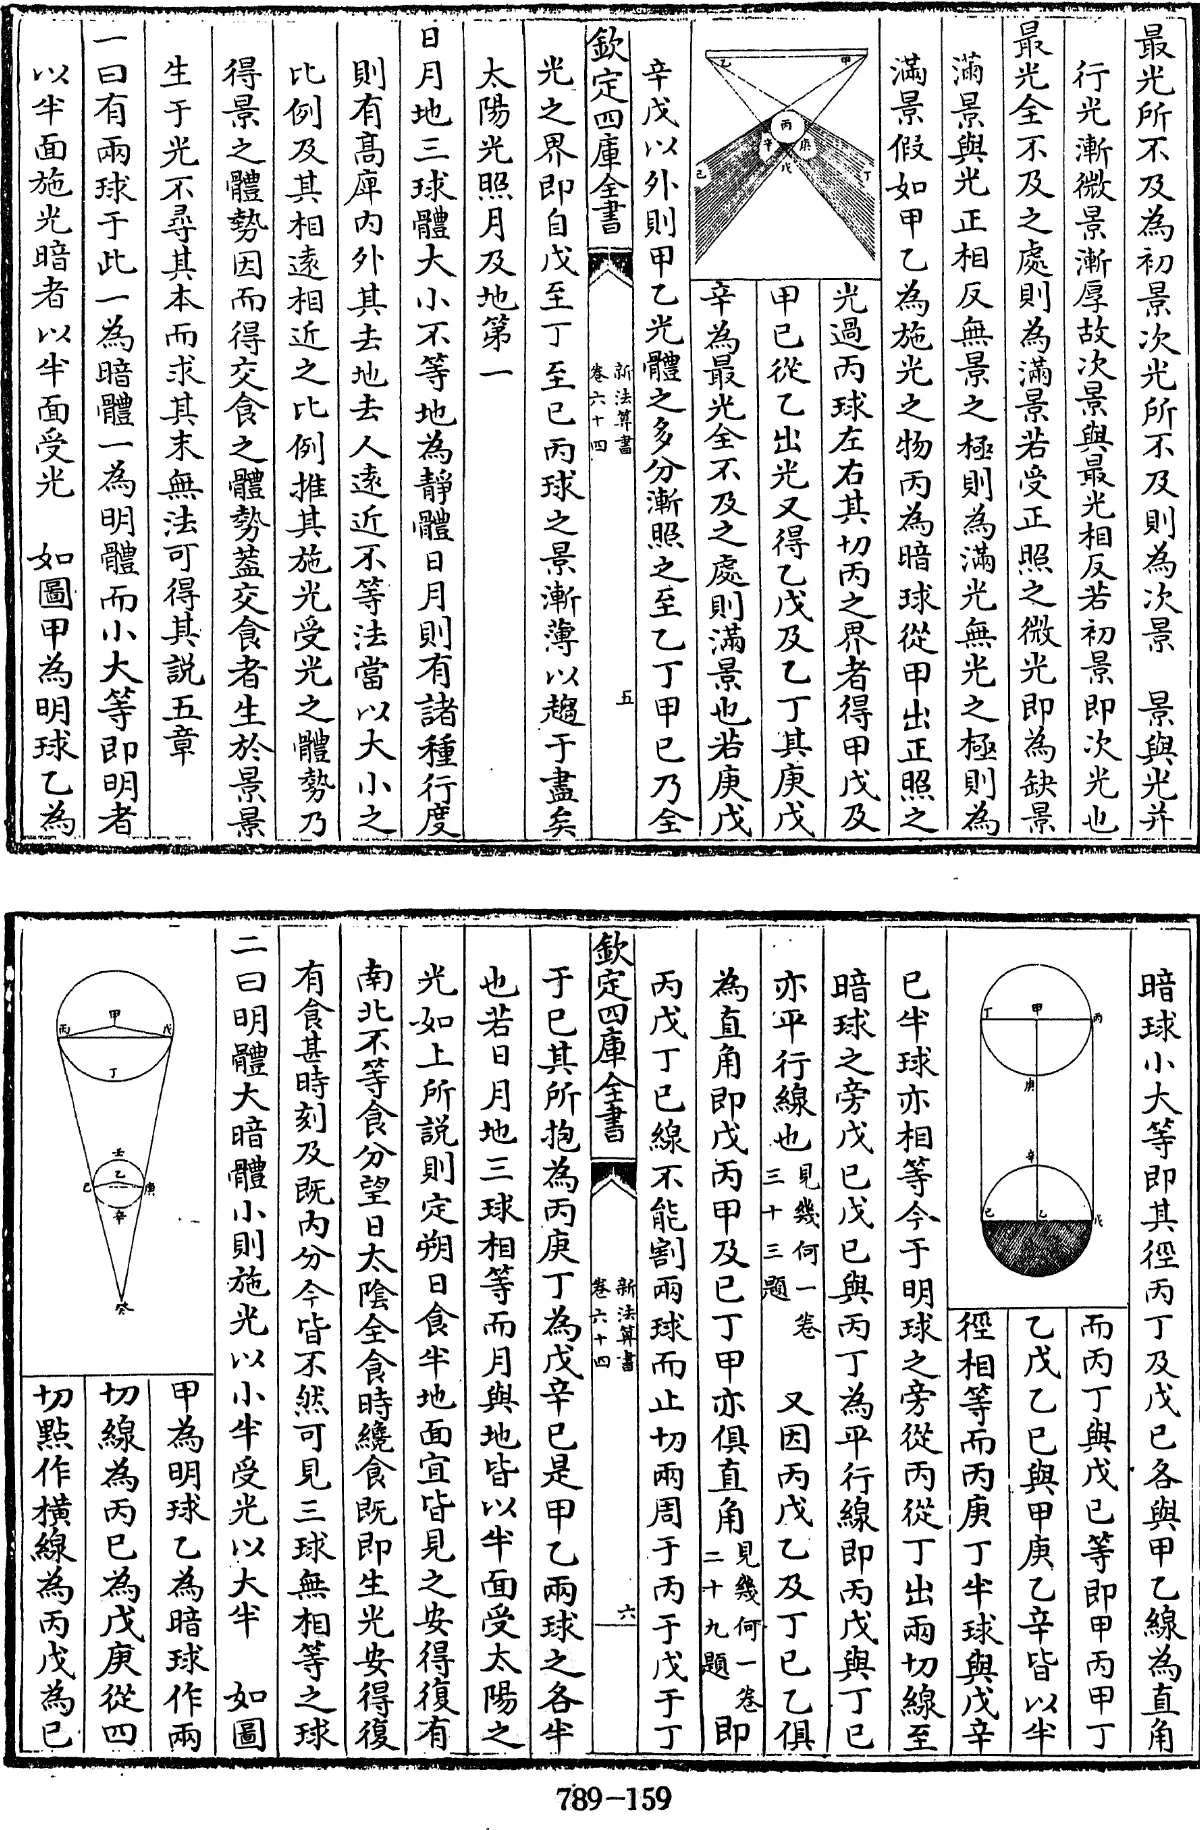 最光所不及為初景次光所不及則為次景　景與光并
行光漸微景漸厚故次景與最光相反若初景即次光也
最光全不及之處則為滿景若受正照之微光即為缺景
滿景與光正相反無景之極則為滿光無光之極則為
滿景假如甲乙為施光之物丙為暗球從甲出正照之
甲
乙
丙
庚
辛
戊
丁
己
光過丙球左右其切丙之界者得甲戊及
甲已從乙出光又得乙戊及乙丁其庚戊
辛為最光全不及之處則滿景也若庚戊
辛戊以外則甲乙光體之多分漸照之至乙丁甲已乃全
欽定四庫全書
新法算書
卷六十四
五
光之界即自戊至丁至已丙球之景漸薄以趨于盡矣
太陽光照月及地第一
日月地三球體大小不等地為靜體日月則有諸種行度
則有高庳內外其去地去人遠近不等法當以大小之
比例及其相遠相近之比例推其施光受光之體勢乃
得景之體勢因而得交食之體勢葢交食者生於景景
生于光不尋其本而求其末無法可得其説五章
一曰有兩球于此一為暗體一為明體而小大等即明者
以半面施光暗者以半面受光　如圖甲為明球乙為
暗球小大等即其徑丙丁及戊已各與甲乙線為直角
丁
甲
丙
庚
辛
已
乙
戊
而丙丁與戊已等即甲丙甲丁
乙戊乙已與甲庚乙辛皆以半
徑相等而丙庚丁半球與戊辛
已半球亦相等今于明球之旁從丙從丁出兩切線至
暗球之旁戊已戊已與丙丁為平行線即丙戊與丁已
亦平行線也見幾何一卷三十三題　又因丙戊乙及丁已乙俱
為直角即戊丙甲及已丁甲亦俱直角見幾何一卷二十九題即
丙戊丁已線不能割兩球而止切兩周于丙于戊于丁
欽定四庫全書
新法算書
卷六十四
六
于已其所抱為丙庚丁為戊辛已是甲乙兩球之各半
也若日月地三球相等而月與地皆以半面受太陽之
光如上所説則定朔日食半地面宜皆見之安得復有
南北不等食分望日太陰全食時纔食既即生光安得復
有食甚時刻及既內分今皆不然可見三球無相等之球
二曰明體大暗體小則施光以小半受光以大半　如圖
甲
丙
戊
丁
壬
乙
已
庚
辛
癸
甲為明球乙為暗球作兩
切線為丙已為戊庚從四
切點作橫線為丙戊為已
789-159